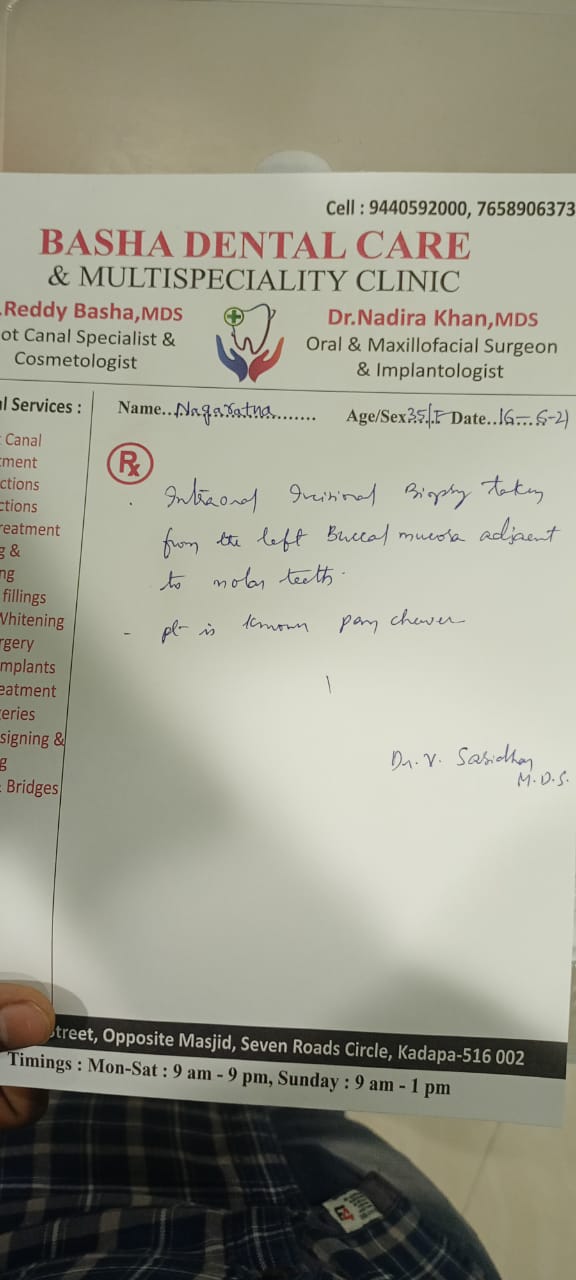 Cell : 9440592000, 7658906373
BASHA DENTAL CARE
& MULTISPECIALITY CLINIC
.Reddy Basha,MDS
ot Canal Specialist &
Cosmetologist
Dr.Nadira Khan,MDS
Oral & Maxillofacial Surgeon
& Implantologist
al Services :
Canal
ment
ctions
ctions
reatment
g &
ng
fillings
Whitening
rgery
mplants
eatment
eries
signing &
g
Bridges
Name...Nagaratna........ Age/Sex 35/F Date..16-...-21
Rx
. Intraoral Incisional Biopsy taken
from the left Buccal mucosa adjacent
to molar teeth.
- pt is known pan chewer
Dr. V. Sasidhar
M.D.S.
street, Opposite Masjid, Seven Roads Circle, Kadapa-516 002
Timings : Mon-Sat : 9 am - 9 pm, Sunday : 9 am - 1 pm